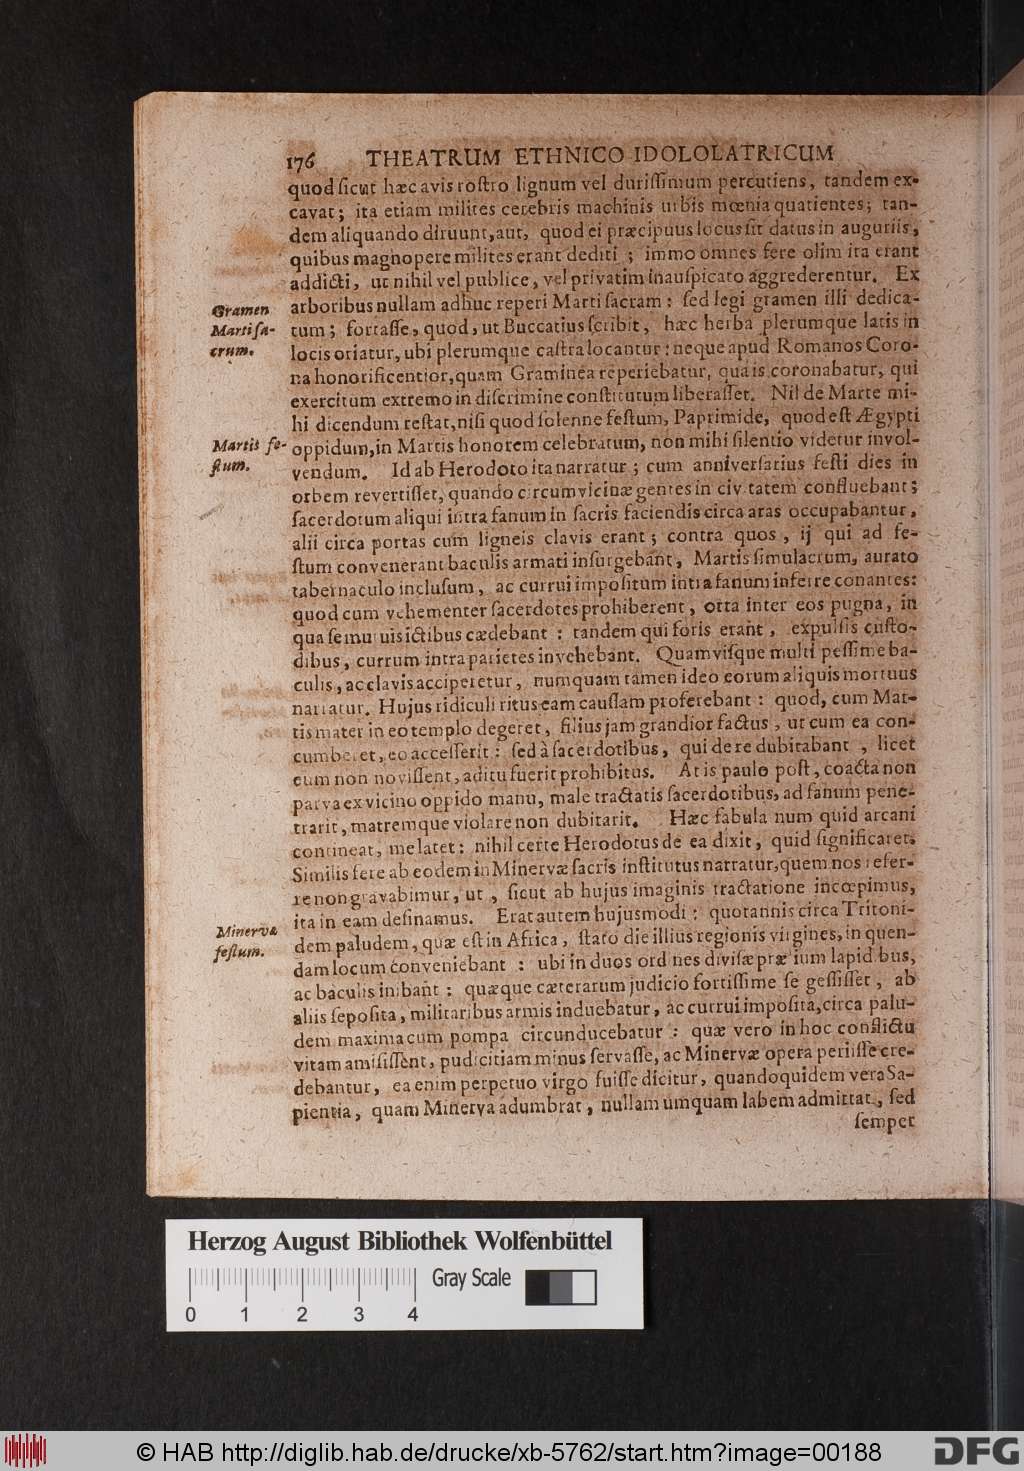 176 THEATRUM ETHNICO IDOLOLATRICUM
quod sicut hæc avis rostro lignum vel durissimum percutiens, tandem ex-
cavat; ita etiam milites cerebris machinis urbis mœnia quatientes; tan-
dem aliquando diruunt, aut, quod ei præcipuus locus sit datus in auguriis,
quibus magnopere milites erant dediti; immo omnes fere olim ita erant
addicti, ut nihil vel publice, vel privatim inauspicato aggrederentur. Ex
Gramen
Marti sa-
crum.
arboribus nullam adhuc reperi Marti sacram: sed legi gramen illi dedica-
tum; fortasse, quod, ut Buccatius scribit, hæc herba plerumque latis in
locis oriatur, ubi plerumque castra locantur: neque apud Romanos Coro-
na honorificentior, quam Graminea reperiebatur, qua is coronabatur, qui
exercitum extremo in discrimine constitutum liberasset. Nil de Marte mi-
hi dicendum restat, nisi quod solenne festum, Paprimide, quod est Ægypti
Martis fe-
stum.
oppidum, in Martis honorem celebratum, non mihi silentio videtur invol-
vendum. Id ab Herodoto ita narratur; cum anniversarius festi dies in
orbem revertisset, quando circumvicinæ gentes in civitatem confluebant;
sacerdotum aliqui intra fanum in sacris faciendis circa aras occupabantur,
alii circa portas cum ligneis clavis erant; contra quos, ij qui ad fe-
stum convenerant baculis armati insurgebant, Martis simulacrum, aurato
tabernaculo inclusum, ac currui impositum intra fanum inferre conantes:
quod cum vehementer sacerdotes prohiberent, orta inter eos pugna, in
qua se mutuis ictibus cædebant: tandem qui foris erant, expulsis custo-
dibus, currum intra parietes invehebant. Quamvisque multi pessime ba-
culis, ac clavis acciperetur, numquam tamen ideo eorum aliquis mortuus
narratur. Hujus ridiculi ritus eam caussam proferebant: quod, cum Mar-
tis mater in eo templo degeret, filius jam grandior factus, ut cum ea con-
cumberet, eo accesserit: sed à sacerdotibus, qui de re dubitabant, licet
eum non novissent, aditu fuerit prohibitus. At is paulo post, coacta non
parva ex vicino oppido manu, male tractatis sacerdotibus, ad fanum pene-
trarit, matremque violare non dubitarit. Hæc fabula num quid arcani
contineat, me latet: nihil certe Herodotus de ea dixit, quid significaret.
Similis fere ab eodem in Minervæ sacris institutus narratur, quem nos refer-
re non gravabimur, ut, sicut ab hujus imaginis tractatione incœpimus,
ita in eam desinamus. Erat autem hujusmodi: quotannis circa Tritoni-
Minervæ
festum.
dem paludem, quæ est in Africa, stato die illius regionis virgines, in quen-
dam locum conveniebant: ubi in duos ordines divisæ prælium lapidibus,
ac baculis inibant: quæque cæterarum judicio fortissime se gessisset, ab
aliis seposita, militaribus armis induebatur, ac currui imposita, circa palu-
dem maxima cum pompa circunducebatur: quæ vero in hoc conflictu
vitam amisissent, pudicitiam minus servasse, ac Minervæ opera periisse cre-
debantur, ea enim perpetuo virgo fuisse dicitur, quandoquidem vera Sa-
pientia, quam Minerva adumbrat, nullam umquam labem admittat, sed
semper
Herzog August Bibliothek Wolfenbüttel
Gray Scale
0 1 2 3 4
© HAB http://diglib.hab.de/drucke/xb-5762/start.htm?image=00188
DFG